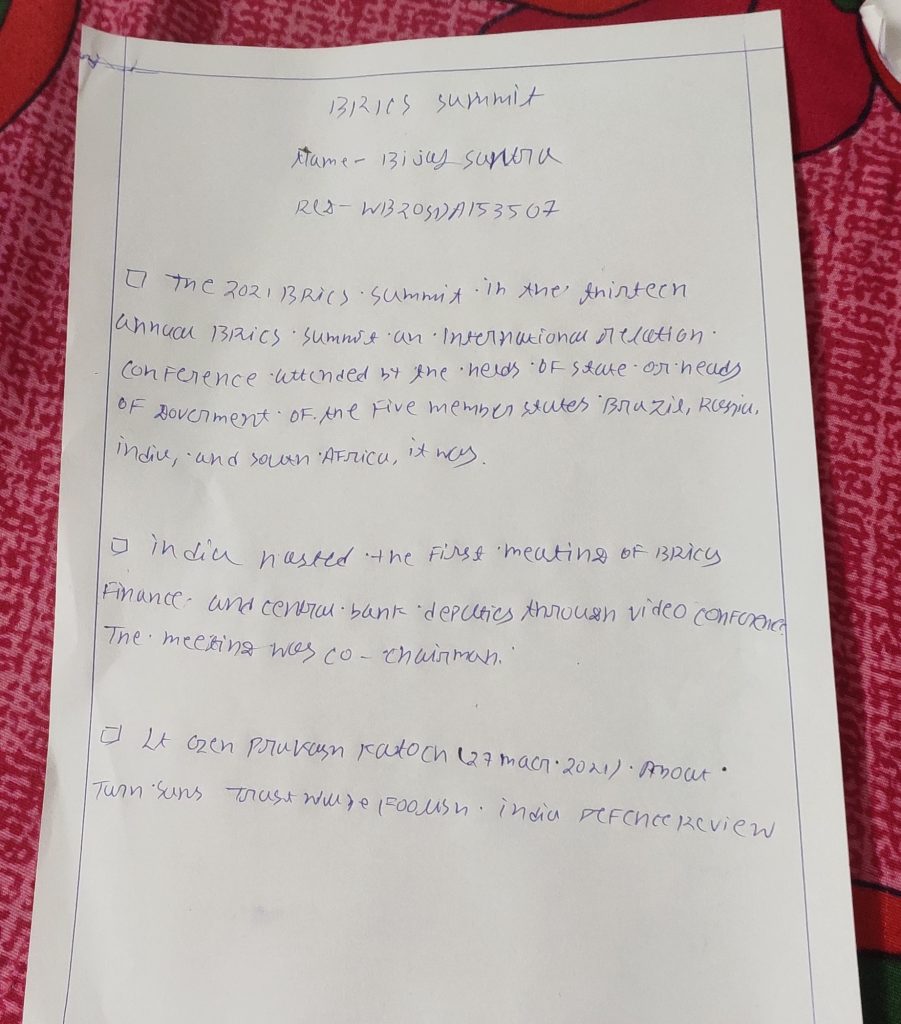 BRICS summit
Name- Bijay Santra
Reg- WB20SDA153507
The 2021 BRICS summit in the thirteen
annual BRICS summit an International relation
conference attended by the heads of state or heads
of Goverment of the Five member states Brazil, Russia,
india, and South Africa, it was.
india hosted the First meating of BRICS
Finance and central bank deputies through video conference
The meeting was co-chairman.
Lt Gen Prakash Katoch (27 mar 2021) About
Turn Trust Foolish india Defence Review